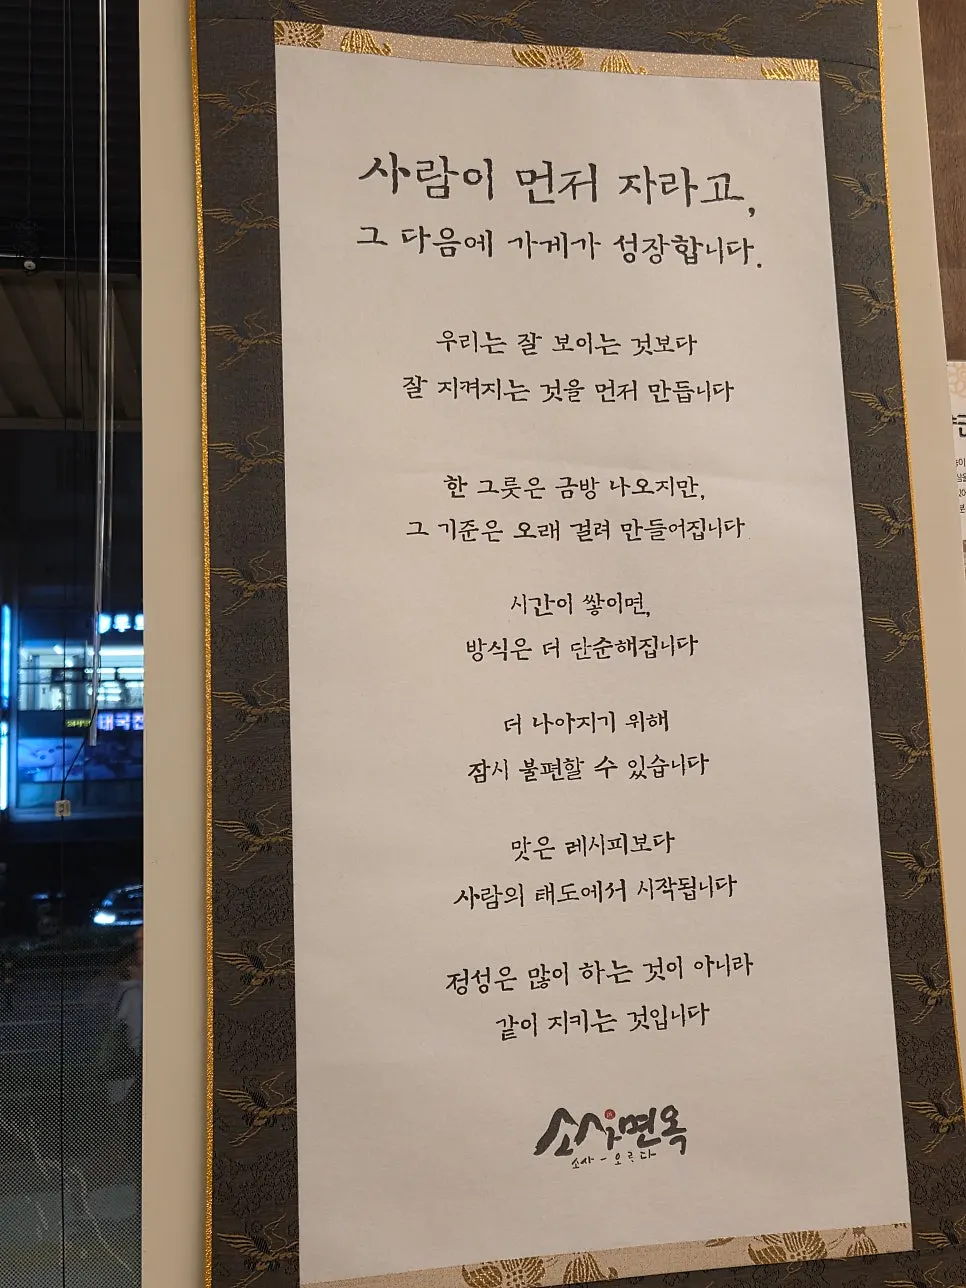 사람이 먼저 자라고,
그 다음에 가게가 성장합니다.
우리는 잘 보이는 것보다
잘 지켜지는 것을 먼저 만듭니다
한 그릇은 금방 나오지만,
그 기준은 오래 걸려 만들어집니다
시간이 쌓이면,
방식은 더 단순해집니다
더 나아지기 위해
잠시 불편할 수 있습니다
맛은 레시피보다
사람의 태도에서 시작됩니다
정성은 많이 하는 것이 아니라
같이 지키는 것입니다
소사면옥
소사-오르다